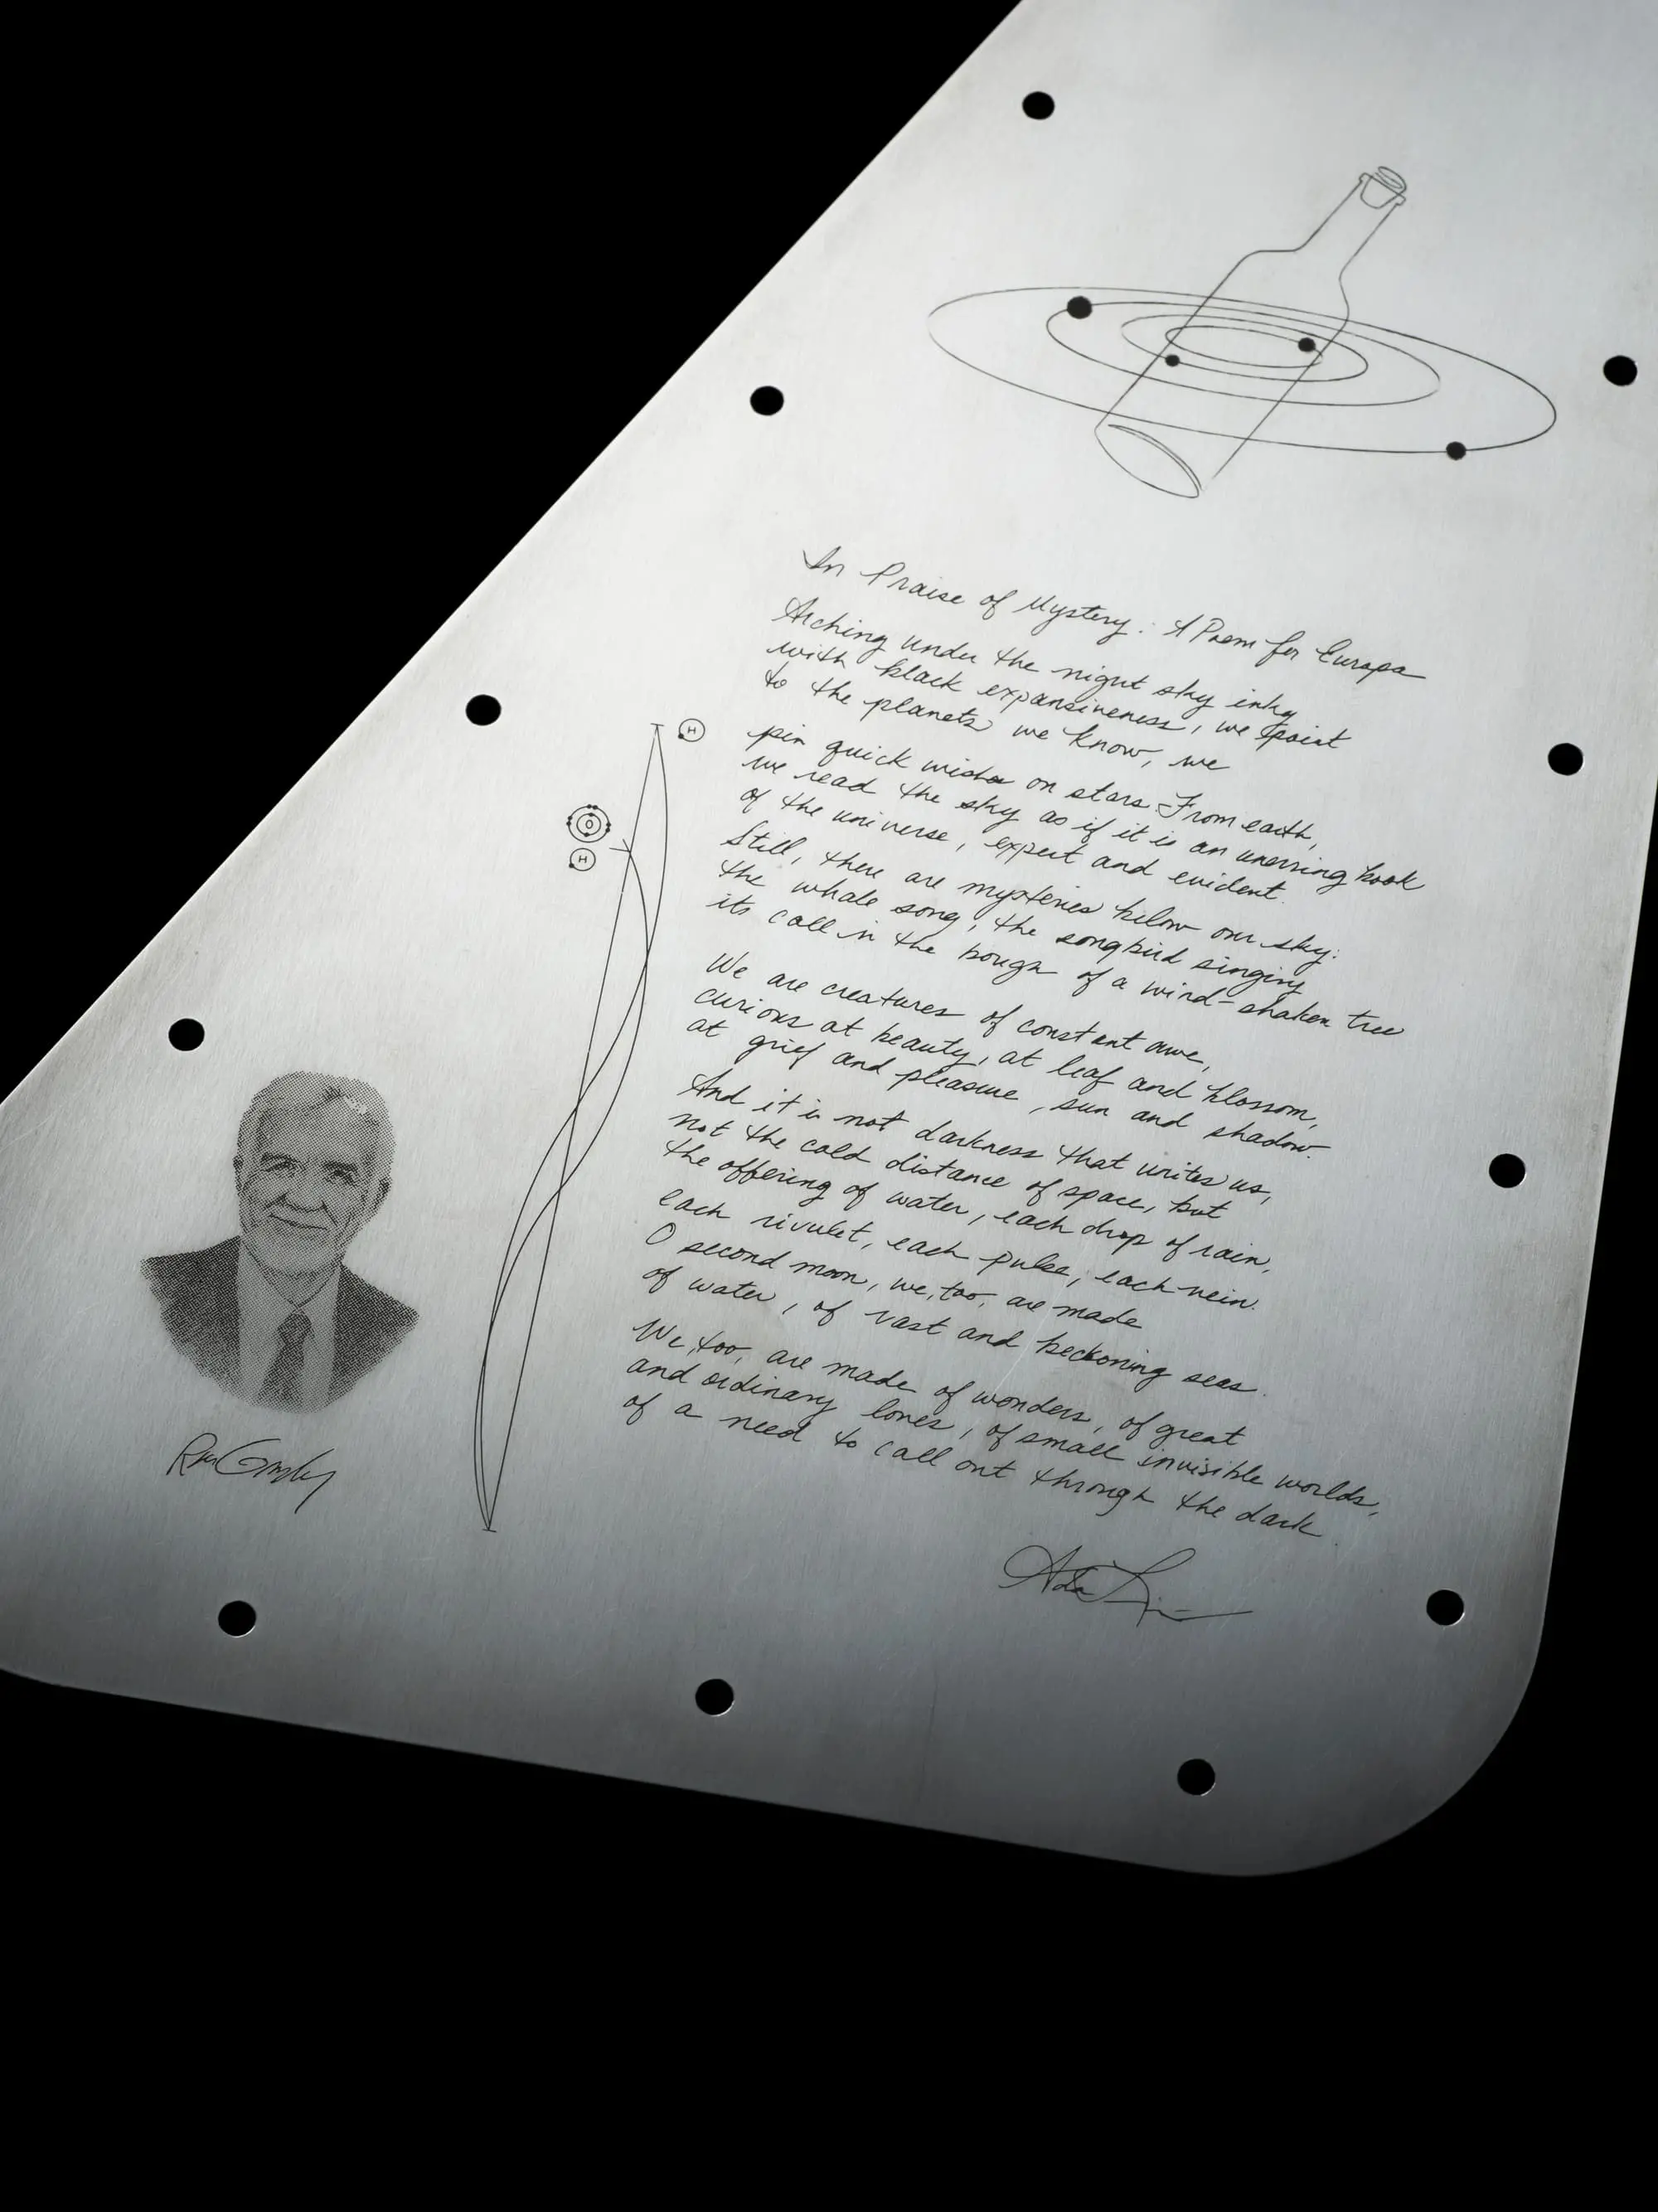 In Praise of Mystery: A Poem for Europa
Arching under the night sky inky
with black expansiveness, we point
to the planets we know, we
pin quick wishes on stars. From earth,
we read the sky as if it is an unerring book
of the universe, expert and evident.
Still, there are mysteries below our sky:
the whale song, the songbird singing
its call in the bough of a wind-shaken tree
We are creatures of constant awe,
curious at beauty, at leaf and blossom,
at grief and pleasure, sun and shadow.
And it is not darkness that unites us,
not the cold distance of space, but
the offering of water, each drop of rain,
each rivulet, each pulse, each vein.
O second moon, we, too, are made
of water, of vast and beckoning seas.
We, too, are made of wonders, of great
and ordinary loves, of small invisible worlds,
of a need to call out through the dark.
Ada Limón
H
O
H
Ron Greeley